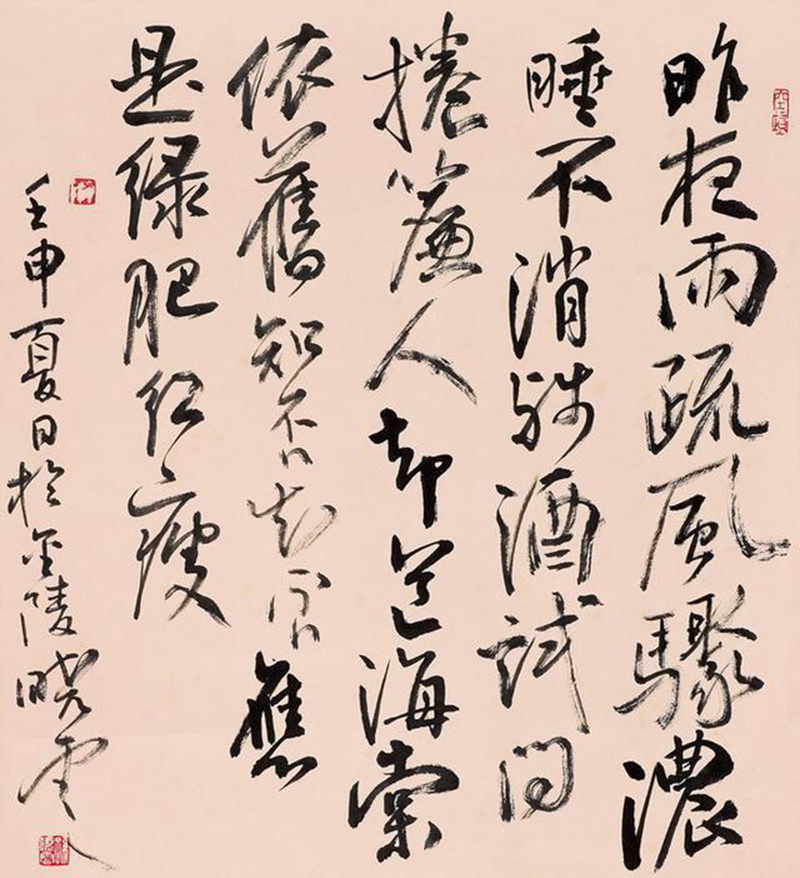 昨夜雨疏風驟濃
睡不消殘酒試问
捲簾人却道海棠
依舊知否知否應
是绿肥红瘦
壬申夏日於金陵晓云